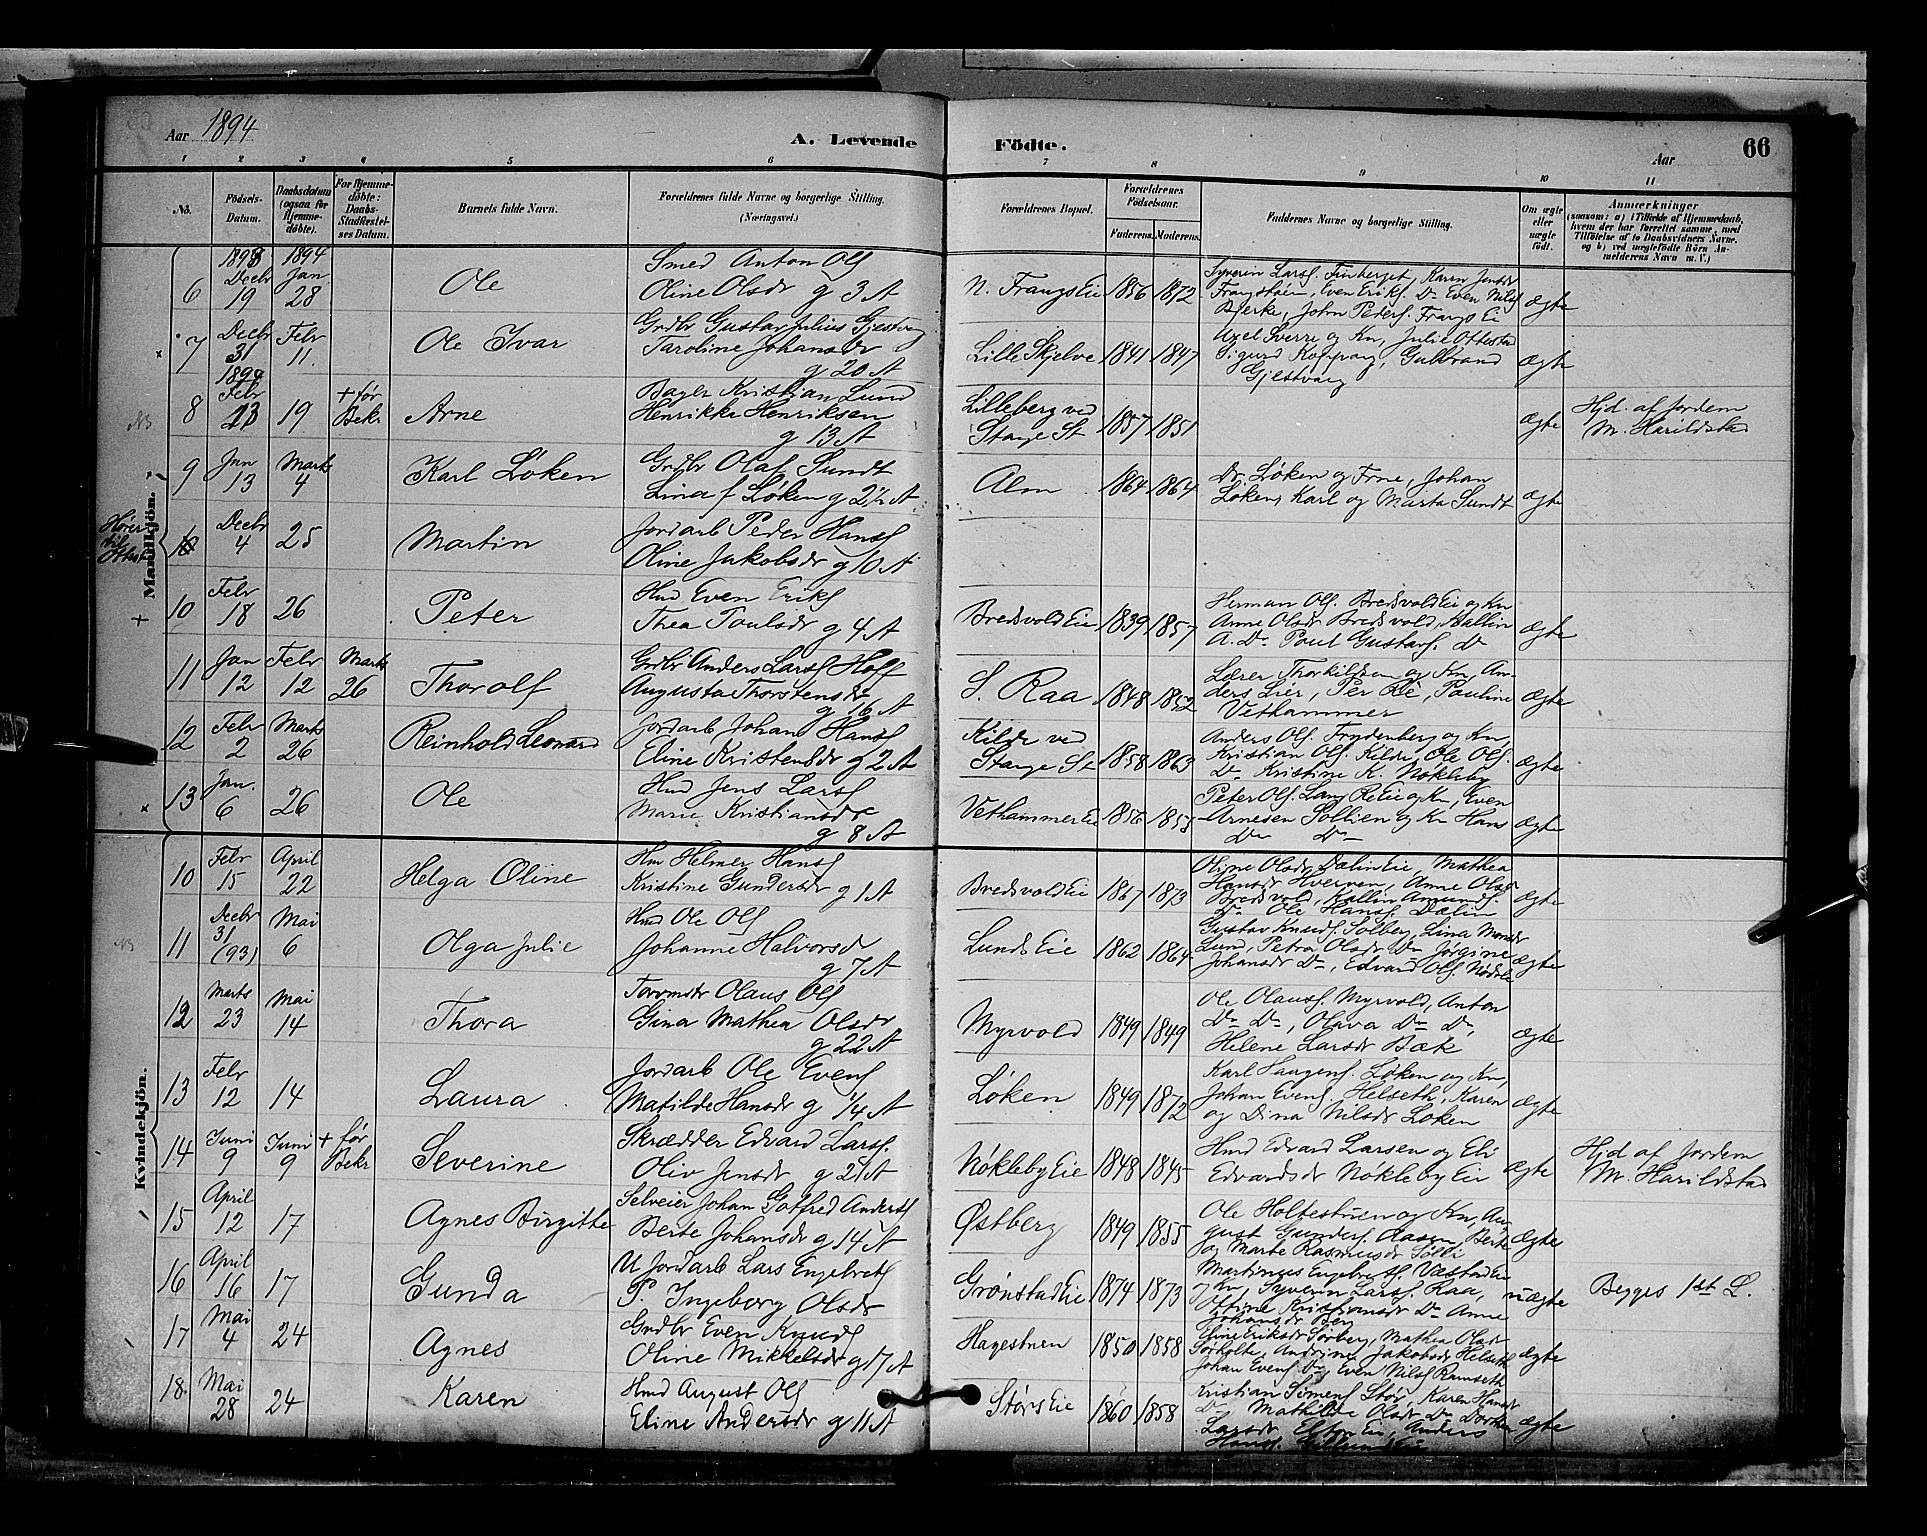 Aar 1894
A. Levende Födte.
Aar
66
1 2 3 4 5 6 7 8 9 10 11
No.
Födsels-Datum.
Daabsdatum (ogsaa for Hjemme-döbte).
For Hjemme-döbte: Daabs-Stadfæstel-ses Datum.
Barnets fulde Navn.
Forældrenes fulde Navne og borgerlige Stilling. (Næringsvei.)
Forældrenes Bopæl.
Forældrenes Födselsaar.
Faderens. Moderens.
Faddernes Navne og borgerlige Stilling.
Om ægte eller uægte födt.
Anmærkninger
(saasom: a) i Tilfælde af Hjemmedaab,
hvem der har forrettet samme, med
Tilföielse af to Daabsvidners Navne.
og b) ved uægtefödte Börn An-
melderens Navn m. V.)
Mandkjön.
6 1893 Decbr 19 1894 Jan 28 Ole
Smed Anton Ols
Oline Olsdr g 3 A
N. Frangs Eie 1856 1872
Syverin Lars. Finberget, Karen Jensdr
Frangstuen, Even Eriks. Do Even Nils
Bjerke, John Peders. Frangs Ei
ægte
7 Decbr 31 Febr 11. Ole Ivar
Grdbr Gustav Julius Gjestvang
Karoline Johansdr
g 20 A
Lille Skjelve 1841 1847
Axel Sverre og Kn, Julie Ottestad
Sigurd Koppang, Gulbrand
Gjestvang
ægte
8 1894 Febr 13 19 + før Bekr Arne
Bager Kristian Lund
Henrikke Henriksen
g 13 A
Lilleberg ved
Stange St 1857 1851
ægte
Hjd. af Jordem
M. Harildstad
9 Jan 13 Marts 4 Karl Løken
Grdbr Olaf Sundt
Lina f Løken g 2½ A
Alm 1864 1864
Dr. Løken og Frue, Johan
Løken, Karl og Marta Sundt
ægte
Hører til
Decbr 4 25 Martin
Jordarb Peder Hans
Oline Jakobsdr g 10 A
10 Febr 18 26 Peter
Hmd Even Eriks
Thea Poulsdr g 4 A
Bredsvold Eie 1839 1857
Herman Ols. Bredsvold Eie og Kn
Anne Olsdr Bredsvold, Kallin
A. Do Poul Gustavs. Do
ægte
11 Jan 12 Febr 12 Marts 26 Thorolf
Grdbr Anders Lars Hoff
Augusta Thorstensdr
g 16 A
S. Raa 1848 1852
Lærer Thorkildsen og Kn, An-
ders Lier, Per Rie, Pauline
Vethammer
ægte
12 Febr 2 Marts 26 Reinhold Leonard
Jordarb Johan Hans
Eline Kristensdr g 2 A
Kilde ved
Stange St 1858 1863
Anders Ols. Frydenberg og Kn,
Kristian Ols. Kilde, Ole Ols.
Do Kristine K. Nøkleby
ægte
13 Jan. 6 26 Ole
Hmd Jens Lars
Marie Kristiansdr
g 8 A
Vethammer Eie 1856 1853
Peter Ols. Lang Rie Eie og Kn, Even
Arnesen Sollien og Kn Hans
Do Do
ægte
Kvindekjön.
10 Febr 15 April 22 Helga Oline
Hm Helmer Hans
Kristine Gundersdr g 1 A
Bredsvold Eie 1867 1873
Oline Olsdr Dælin Eie Mathea
Hansdr Hverven, Anne Olsdr
Bredsvold, Kallin Amunds.
Do Ole Hans. Dælin
ægte
11 Decbr 31 (93) Mai 6 Olga Julie
Hmd Ole Ols
Johanne Halvorsd
g 7 A
Lunds Eie 1862 1864
Gustav Knuds. Solberg, Lina Monsdr
Lund, Petra Olsdr Do Jørgine
Johansdr Do, Edvard Ols.
ægte
12 Marts 23 Mai 14 Thora
Tømmdr Olaus Ols
Gina Mathea Olsdr
g 22 A
Myrvold 1849 1849
Ole Olaus. Myrvold, Anton
Do Do, Olava Do Do,
Helene Larsdr Bæk
ægte
13 Febr 12 14 Laura
Jordarb Ole Evens
Matilde Hansdr g 1/4 A
Løken 1849 1872
Karl Haagens. Løken og Kn,
Johan Evens. Helseth, Karen
og Dina Nilsdr Løken
ægte
14 Juni 9 Juni 9 + før Bekr Severine
Skrædder Edvard Lars.
Oliv Jensdr g 21 A
Nøkleby Eie 1848 1845
Hmd Edvard Larsen og Eli
Edvardsdr Nøkleby Eie
ægte
Hjd af Jordem
M. Harildstad
15 April 12 17 Agnes Birgitte
Selveier Johan Gotfred Anders
Berte Johansdr g 14 A
Østberg 1849 1855
Ole Holtestuen og Kn, Au-
gust Gunders. Aasen, Berte
og Marte Rasmusdr Solli
ægte
16 April 16 17 Gunda
U Jordarb Lars Engebrets
P. Ingeborg Olsdr
Grønstad Eie 1874 1873
Martinus Engebrets. Væstad Eie
og Kn, Syverin Lars. Raa,
Ottine Kristiansdr Do Anne
Johansdr Berg
uægte
Begges 1st L.
17 Mai 4 24 Agnes
Grdbr Even Knuds
Oline Mikkelsdr g 17 A
Hagestuen 1850 1858
Eline Eriksdr Sørberg, Mathea Olsdr
Sørholte, Andrine Jakobsdr Helseth
Johan Evens. Do, Even Nils Ramseth
ægte
18. Mai 28 24 Karen
Hmd August Ols
Eline Andersdr g 11 A
Størs Eie 1860 1858
Kristian Simens. Stør, Karen Hansdr
Do Mathilde Olsdr Do Dorthe
Larsdr, Anders
Hans.
ægte